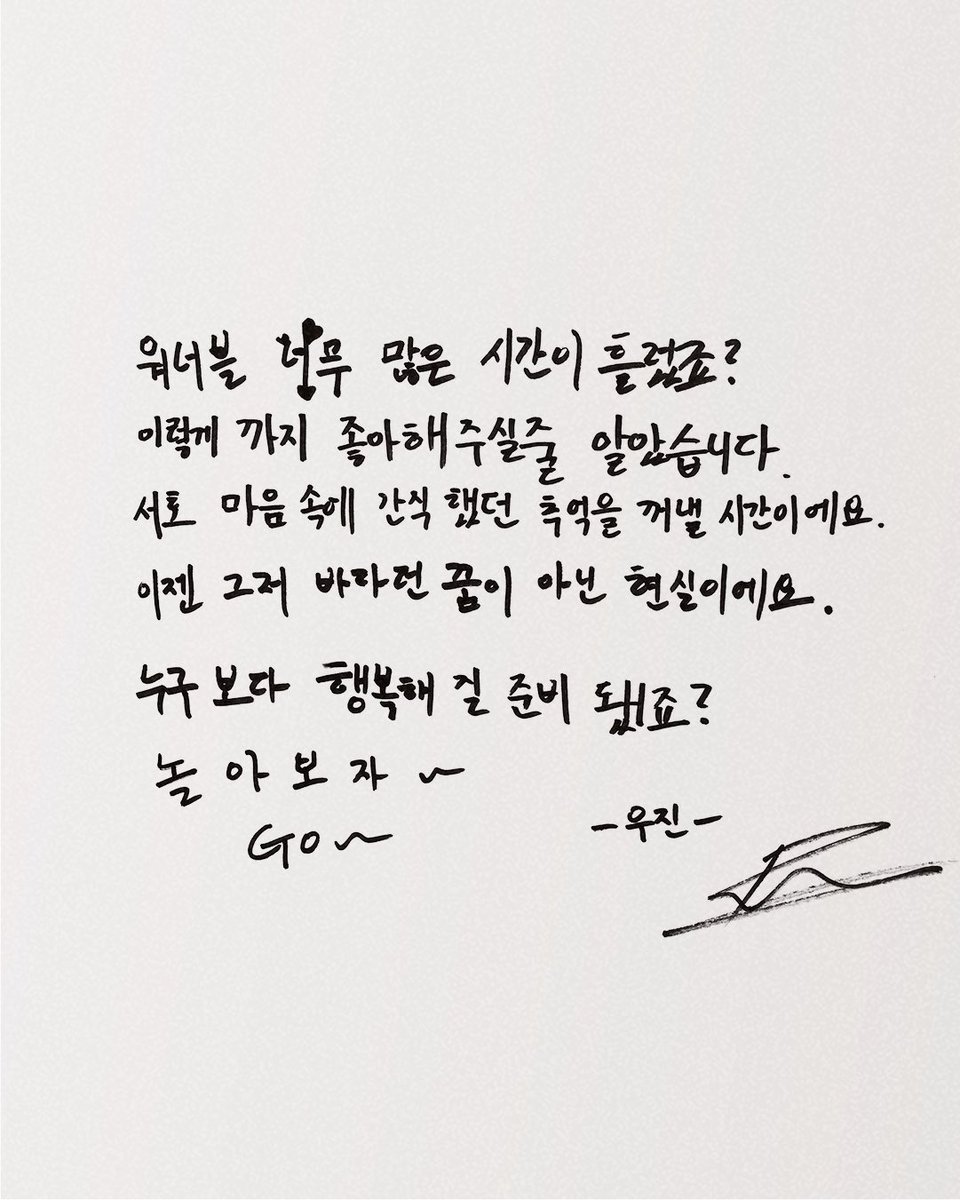 워너블 너무 많은 시간이 흘렀죠?
이렇게 까지 좋아해주실줄 알았습니다.
서로 마음 속에 간직 했던 추억을 꺼낼 시간이에요.
이젠 그저 바라던 꿈이 아닌 현실이에요.
누구 보다 행복해 질 준비 됐죠?
놀아보자~
Go~
-우진-